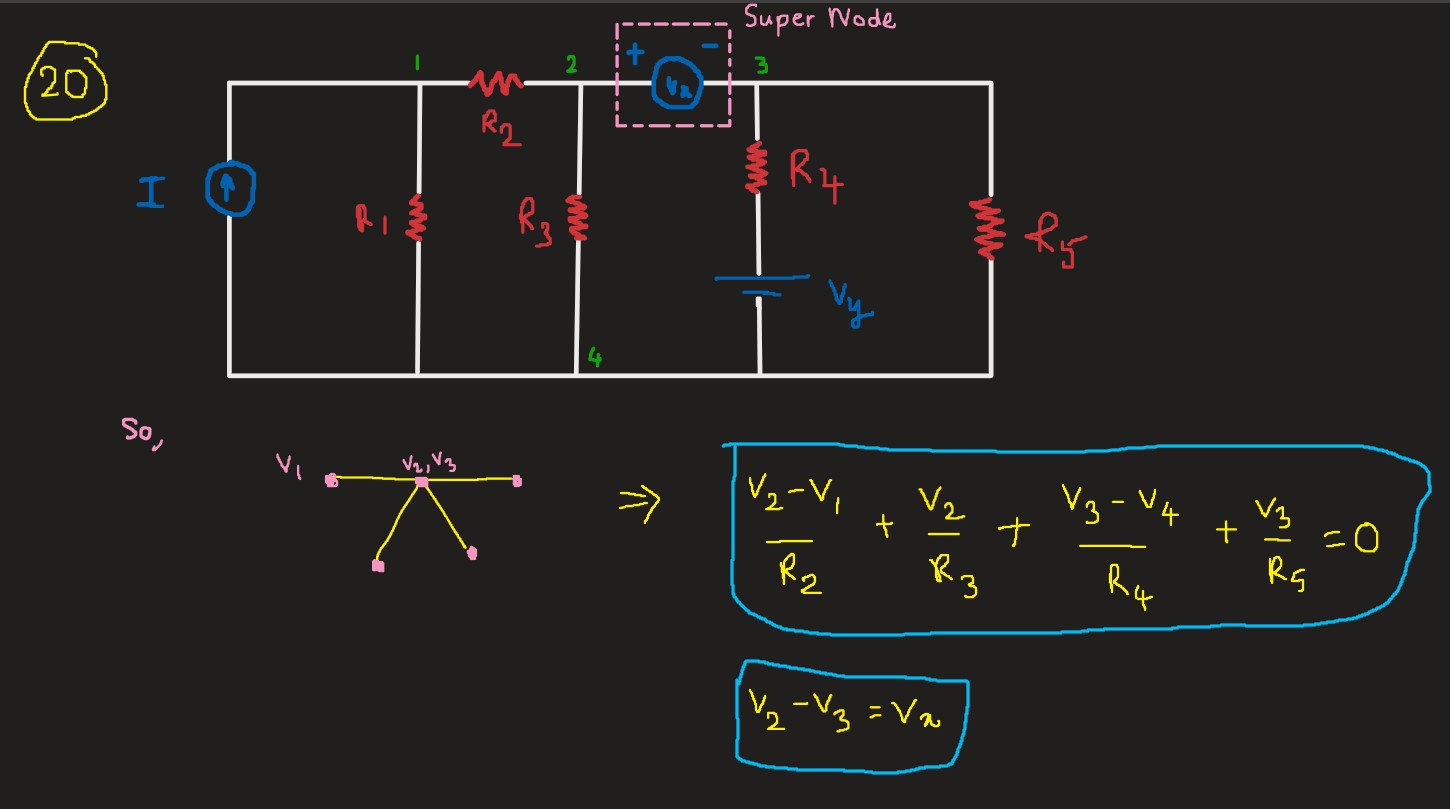 Super Node
20
1
2
+
-
3
Vx
R2
I
R1
R3
R4
R5
Vy
4
So,
V1
V2, V3
⇒
(V2 - V1)/R2 + V2/R3 + (V3 - V4)/R4 + V3/R5 = 0
V2 - V3 = Vx